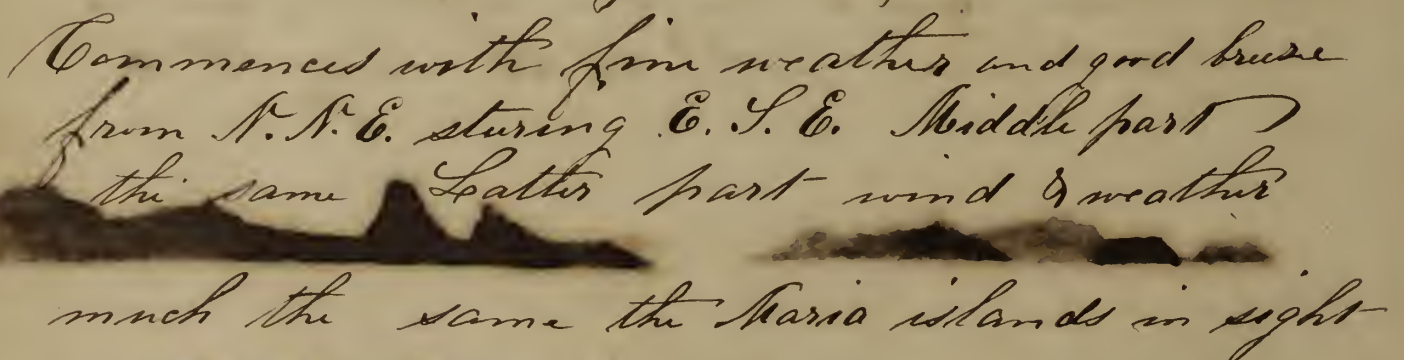 Commences with fine weather and good breese
from N. N. E. sturing E. S. E. Middle part
the same Latter part wind & weather
much the same the Maria islands in sight